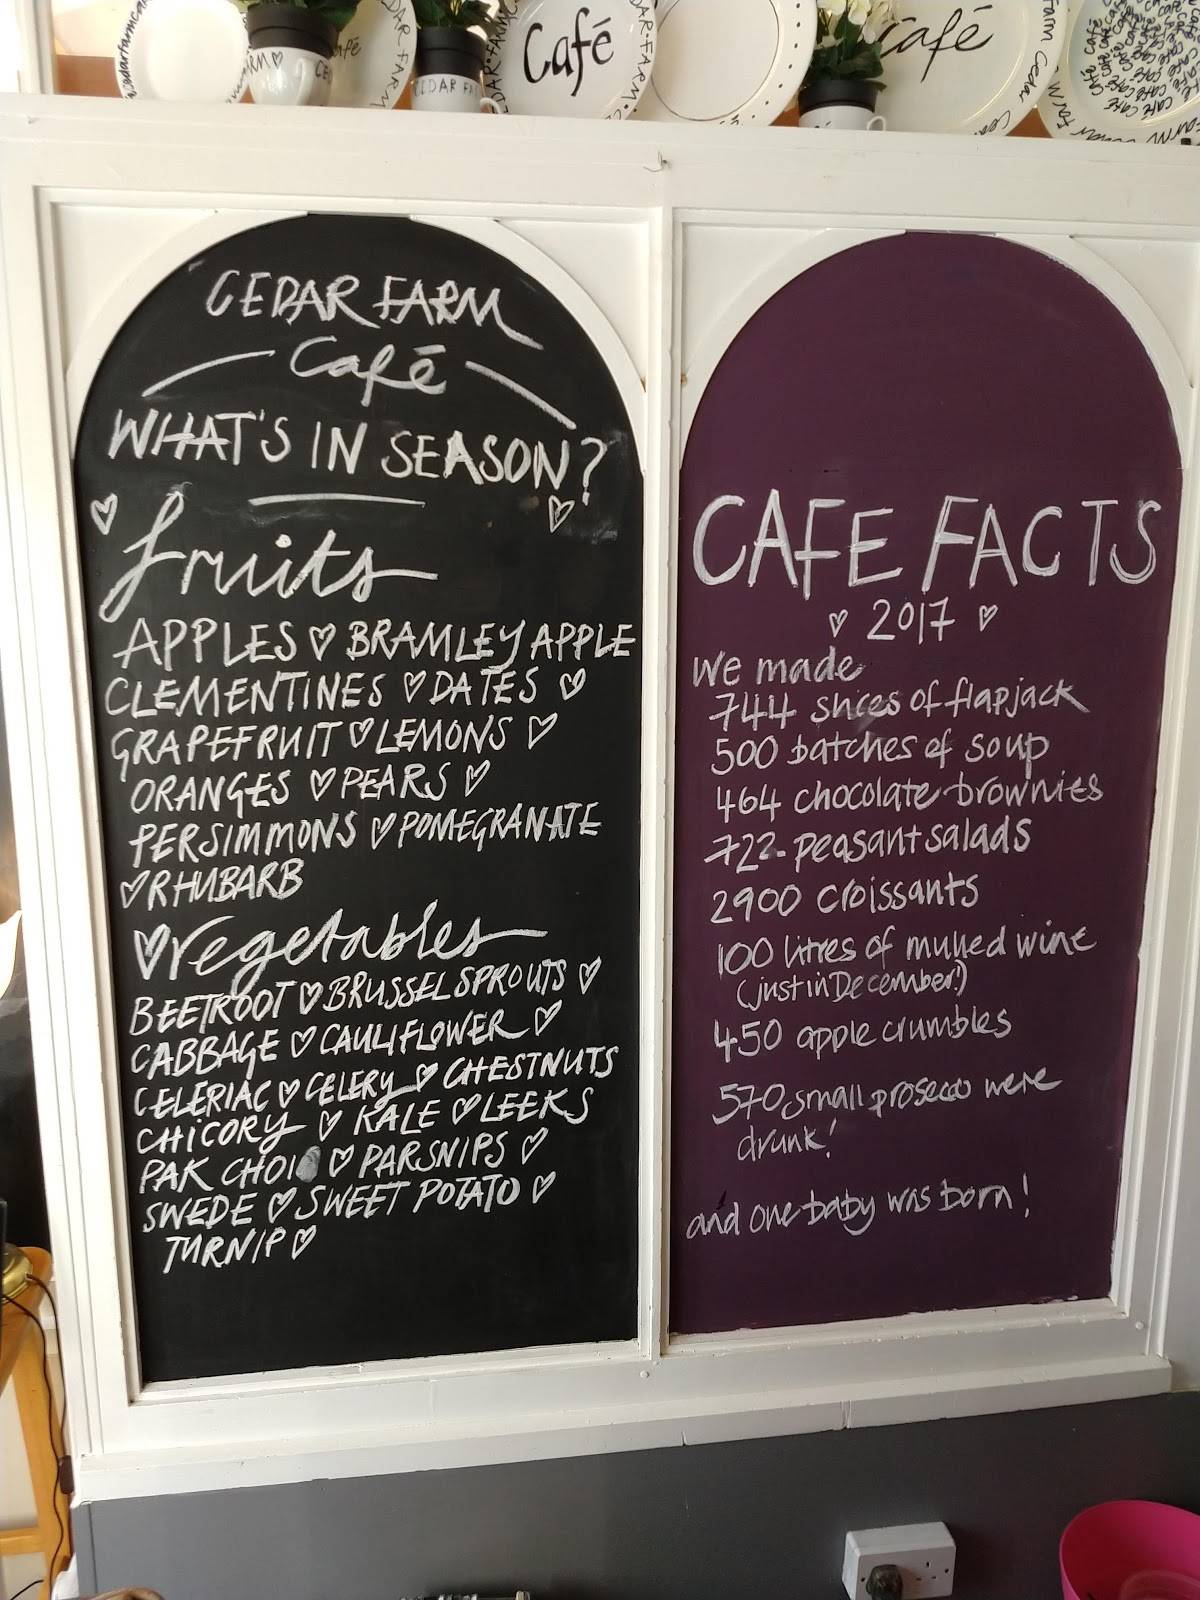 Café
CEDAR FA
Café
café
CEDAR FARM
Café
WHAT'S IN SEASON?
fruits
APPLES ♡ BRAMLEY APPLE
CLEMENTINES ♡ DATES ♡
GRAPEFRUIT ♡ LEMONS ♡
ORANGES ♡ PEARS ♡
PERSIMMONS ♡ POMEGRANATE
♡ RHUBARB
♡ Vegetables
BEETROOT ♡ BRUSSEL SPROUTS ♡
CABBAGE ♡ CAULIFLOWER ♡
CELERIAC ♡ CELERY ♡ CHESTNUTS
CHICORY ♡ KALE ♡ LEEKS
PAK CHOI ♡ PARSNIPS ♡
SWEDE ♡ SWEET POTATO ♡
TURNIP ♡
CAFE FACTS
♡ 2017 ♡
we made
744 slices of flapjack
500 batches of soup
464 chocolate brownies
722 peasant salads
2900 croissants
100 litres of mulled wine
(just in December!)
450 apple crumbles
570 small prosecco were
drunk!
and one baby was born!